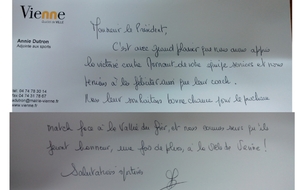 Vienne
Annie Dutron
Adjointe aux sports
Monsieur le Président,
C'est avec grand plaisir que nous avons appris
la victoire contre de votre équipe seniors et nous
tenions à la féliciter ainsi que leur coach.
Nous leur souhaitons bonne chance pour le prochain
match face à la Vallée du, et nous sommes sûrs qu'ils
feront honneur, une fois de plus, à la Ville de Vienne !
Salutations sportives